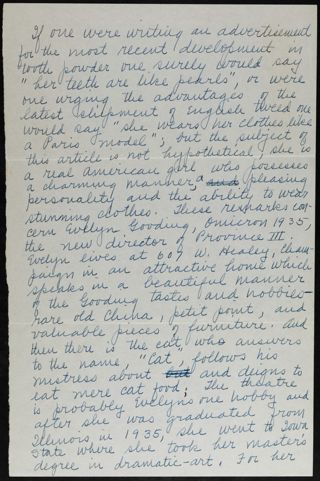 If one were writing an advertisement
for the most recent development in
tooth powder one surely would say
"her teeth are like pearls", or were
one urging the advantages of the
latest shipment of English tweed one
would say "she wears her clothes like
a Paris model"; but the subject of
this article is not hypothetical; she is
a real American girl who possesses
a charming manner, a pleasing
personality and the ability to wear
stunning clothes. These remarks con-
cern Evelyn Gooding, Omicron 1935,
the new director of Province III.
Evelyn lives at 607 W. Healey, Cham-
paign in an attractive home which
speaks in a beautiful manner
of the Gooding tastes and hobbies—
rare old china, petit point, and
valuable pieces of furniture. And
then there is the cat, who answers
to the name, "Cat", follows his
mistress about and deigns to
eat mere cat food. The theatre
is probably Evelyn's one hobby and
after she was graduated from
Illinois, in 1935, she went to Iowa
State where she took her master's
degree in dramatic-art. For her